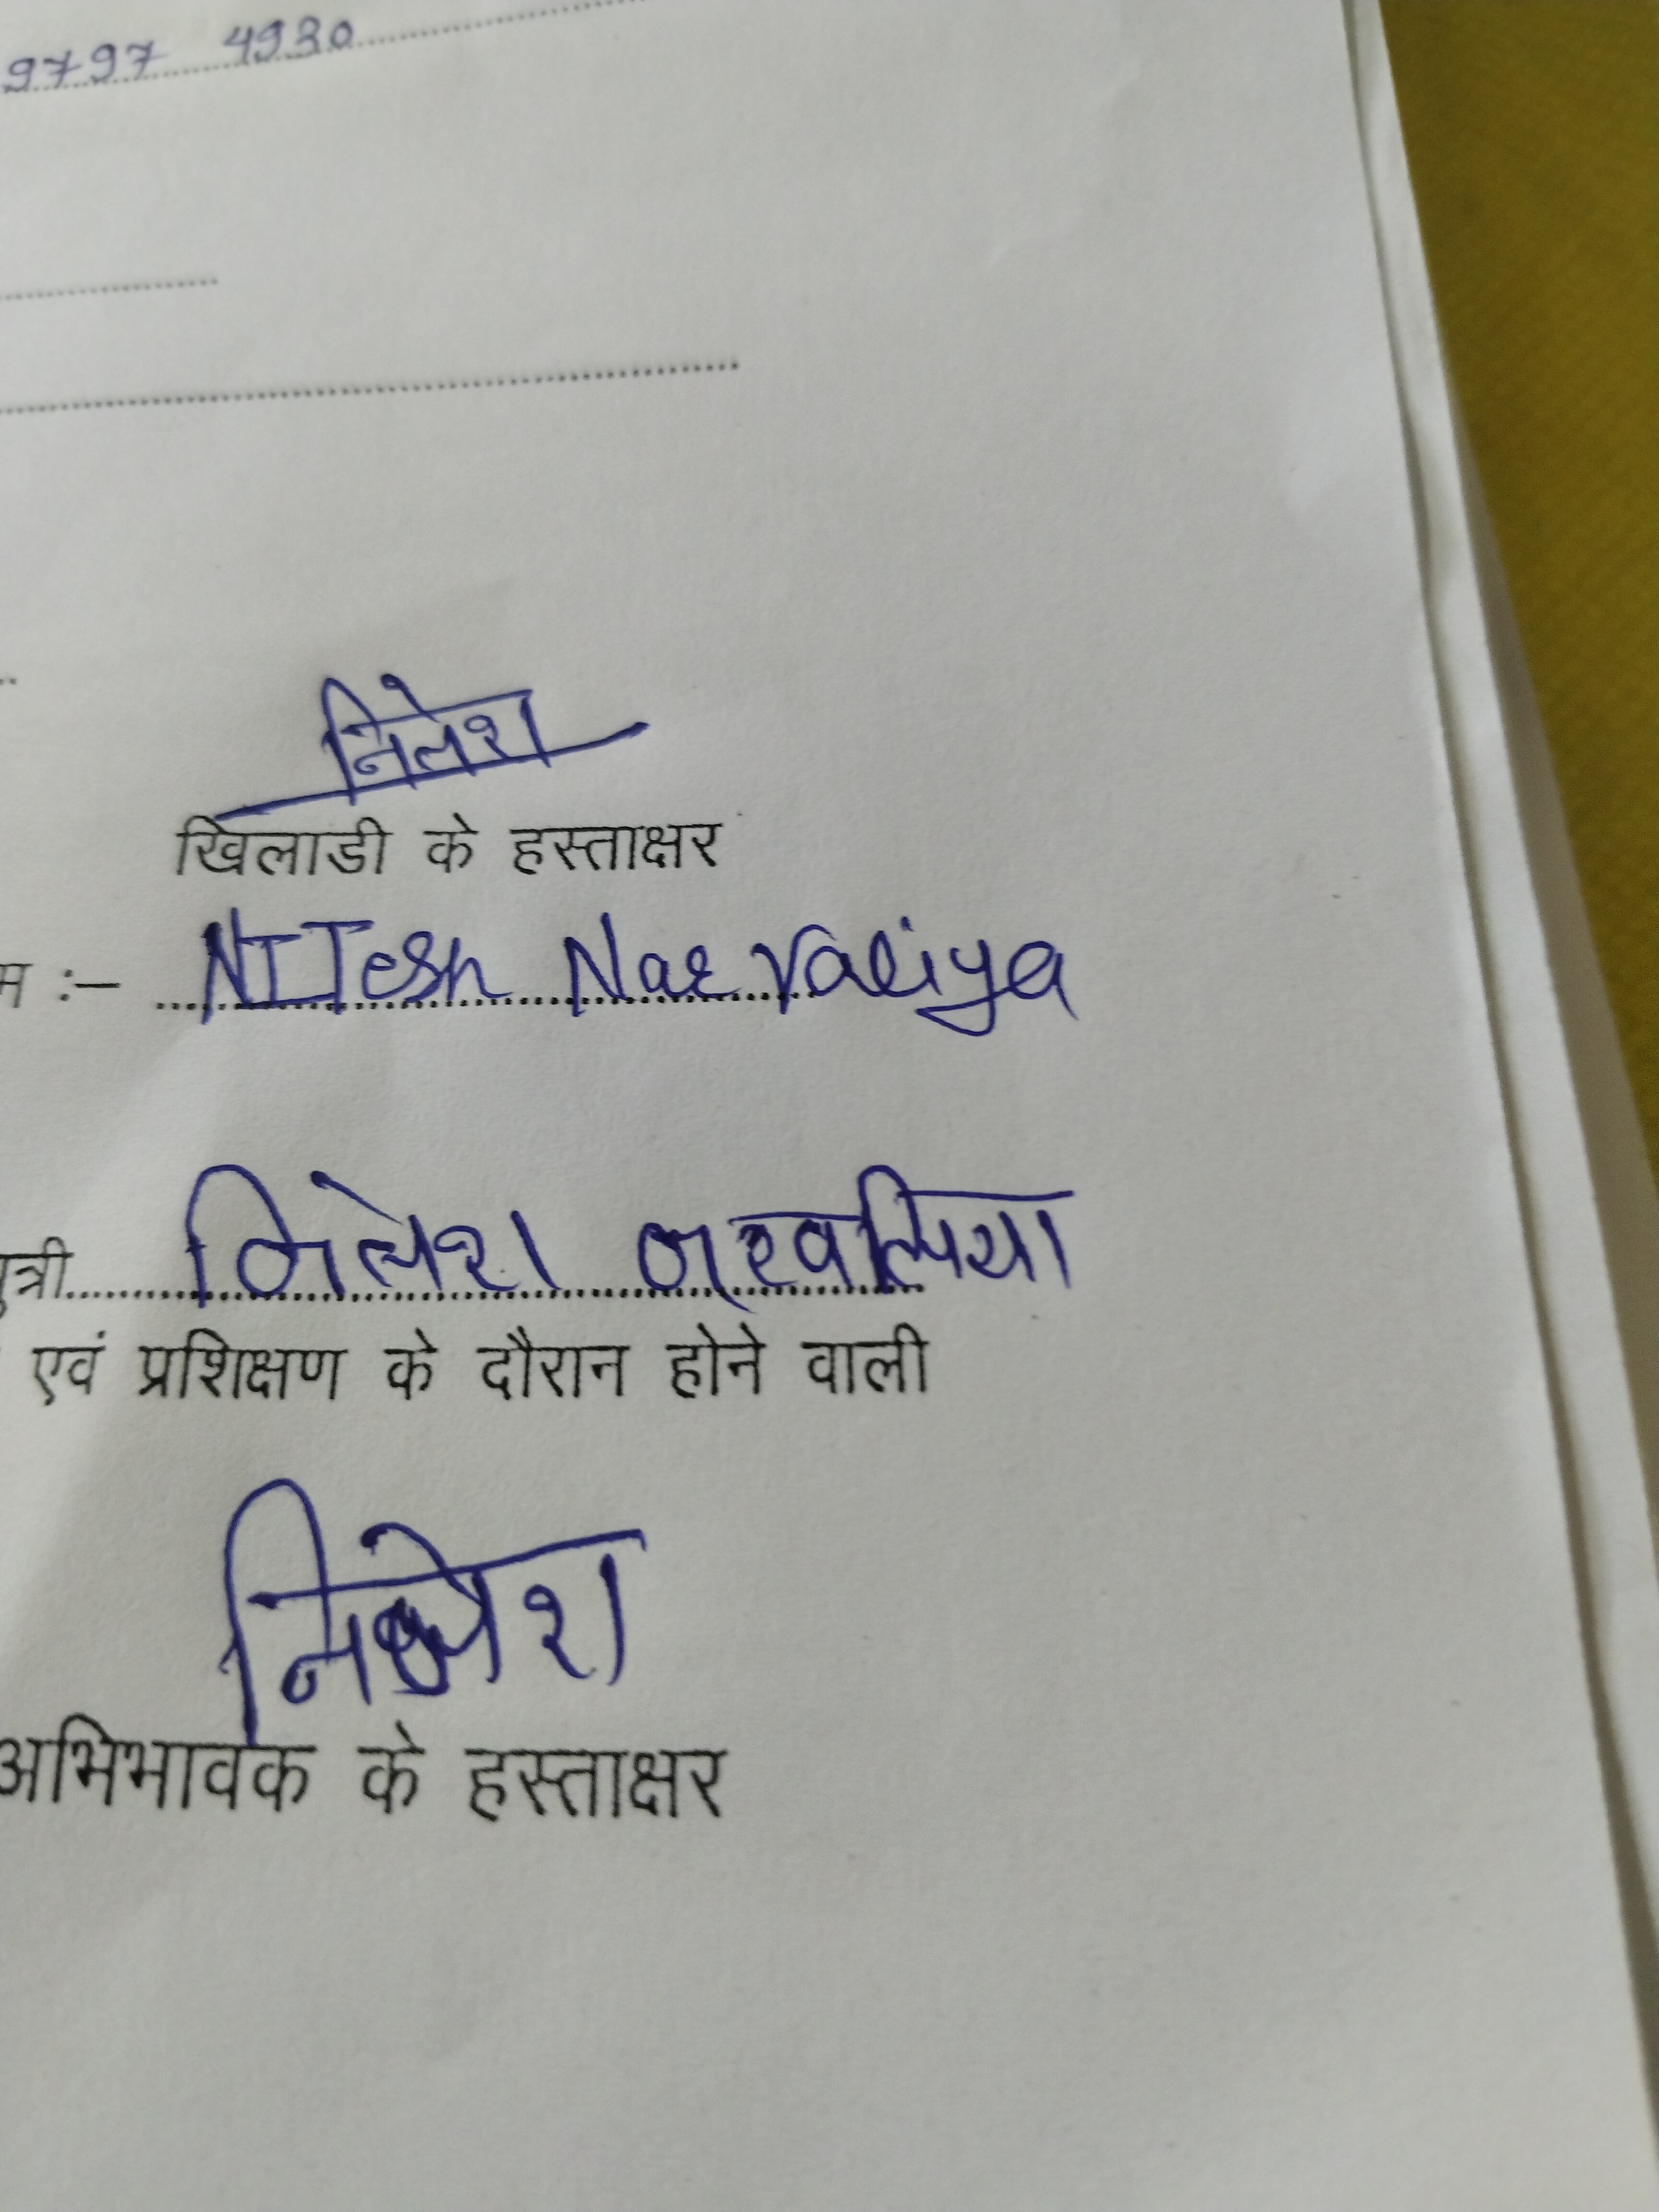 9797 4930
नितेश
खिलाडी के हस्ताक्षर
म :- NITesh Narvaliya
पुत्री नितेश नरवलिया
एवं प्रशिक्षण के दौरान होने वाली
नितेश
अभिभावक के हस्ताक्षर